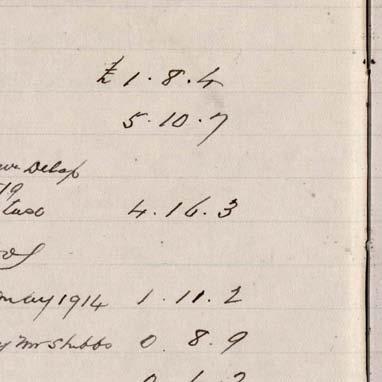 £1.8.4
5.10.7
Delap
19
4.16.3
May 1914 1.11.2
Mr Stubbs 0.8.9